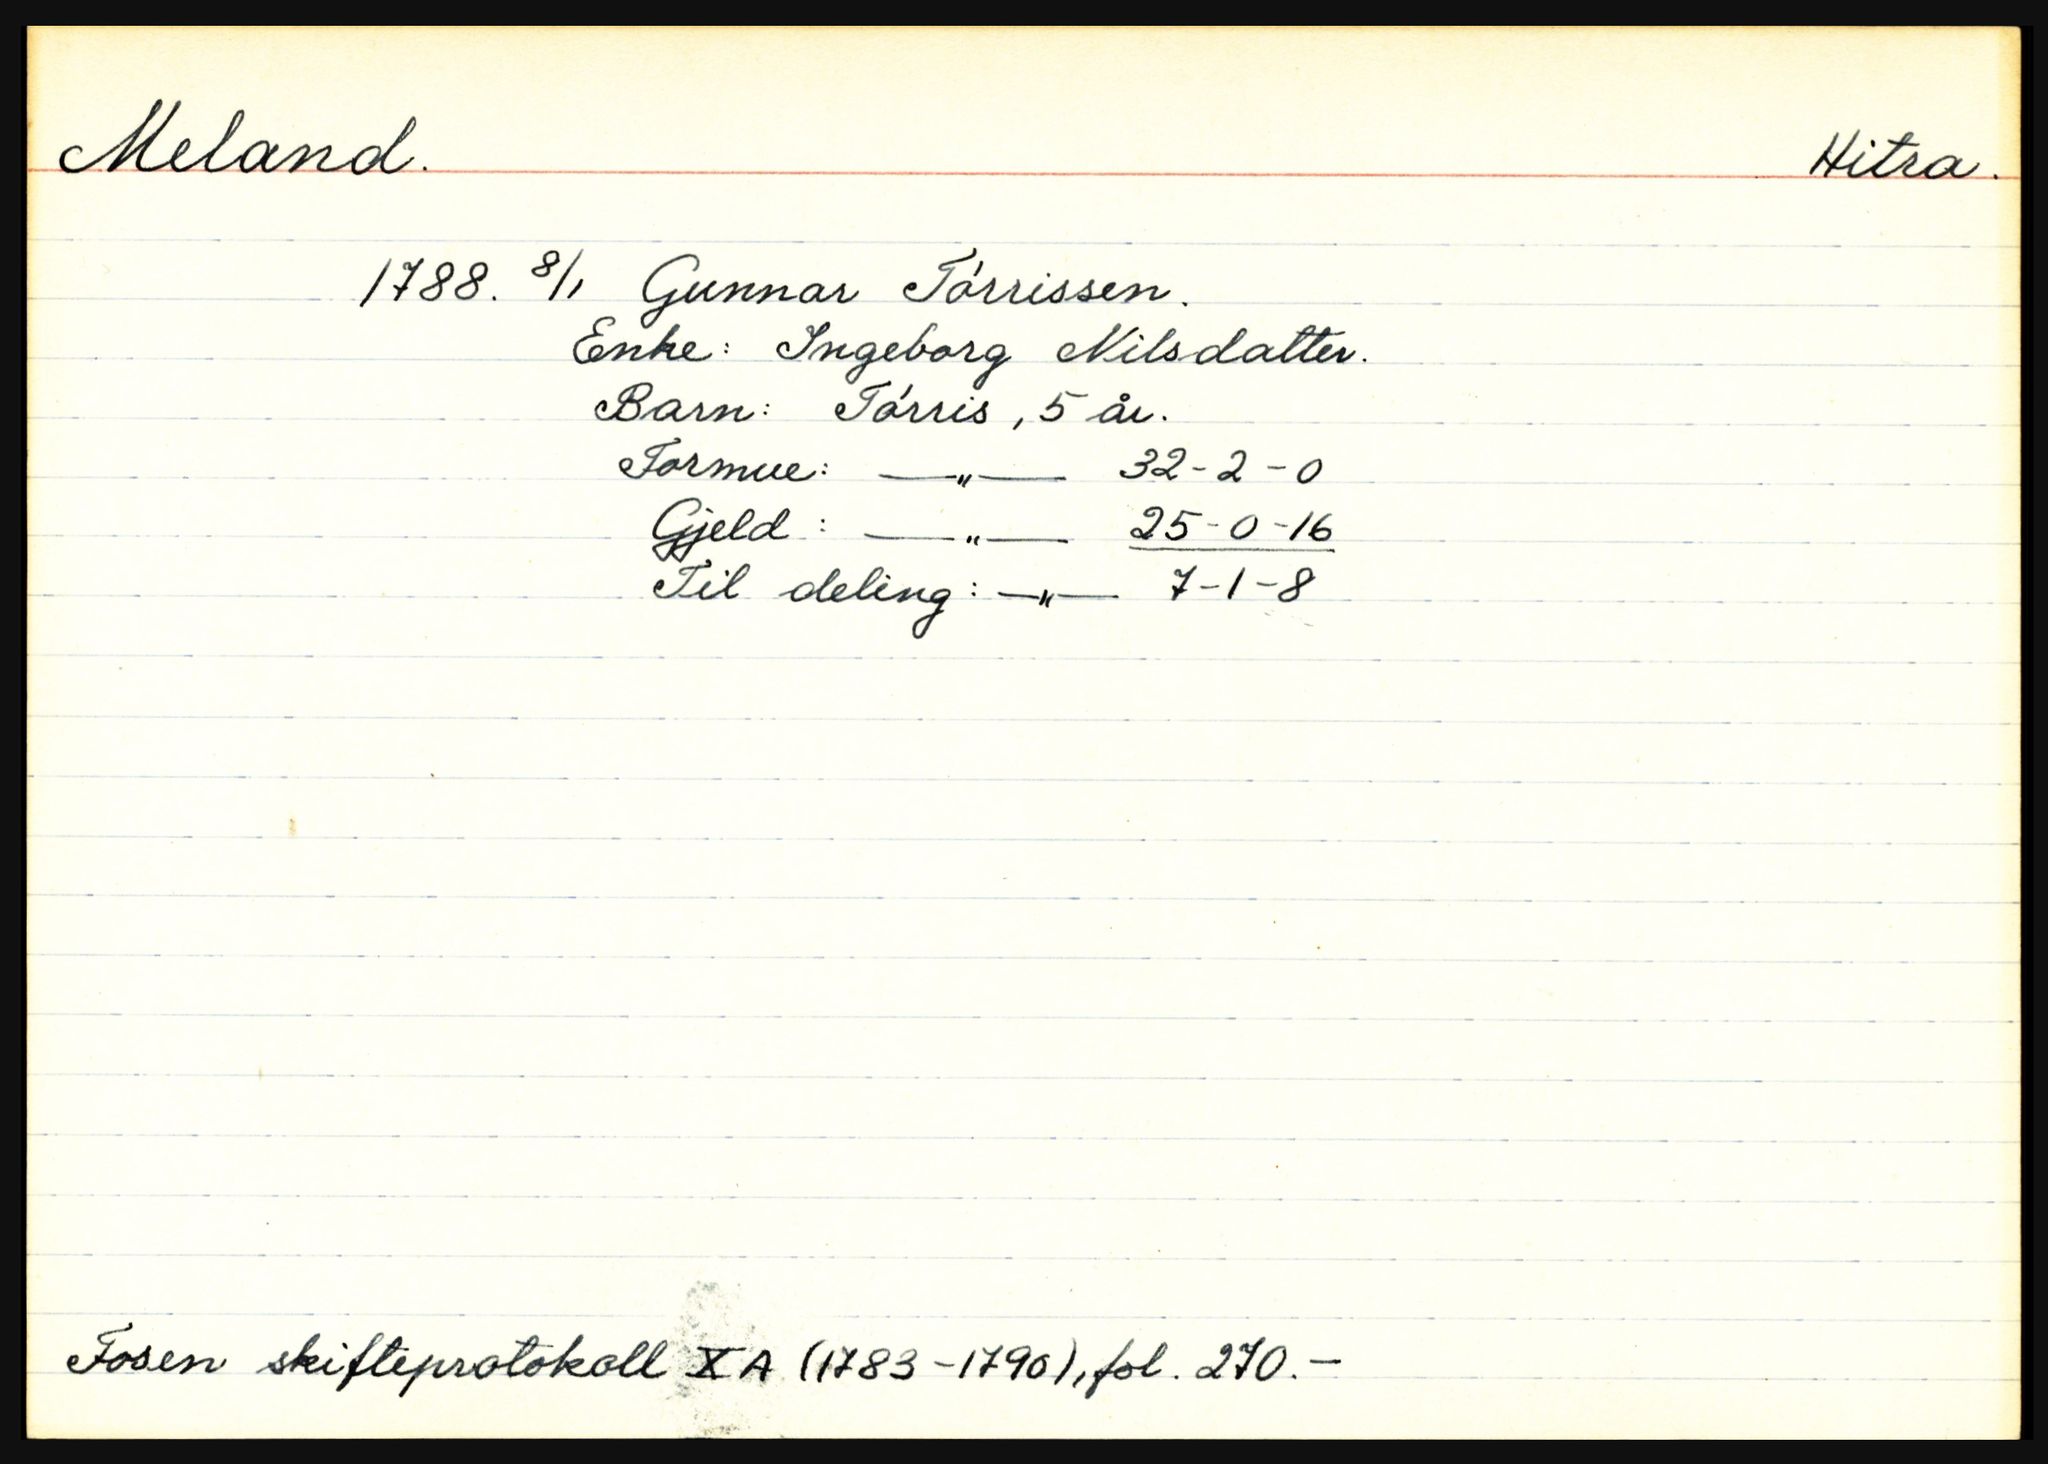 Meland. Hitra.
1788. 8/1 Gunnar Tórrissen.
Enke: Ingeborg Nilsdatter.
Barn: Tórris, 5 år.
Formue: —„— 32-2-0
Gjeld: —„— 25-0-16
Til deling: —„— 7-1-8
Fosen skifteprotokoll XA (1783-1790), fol. 270.—